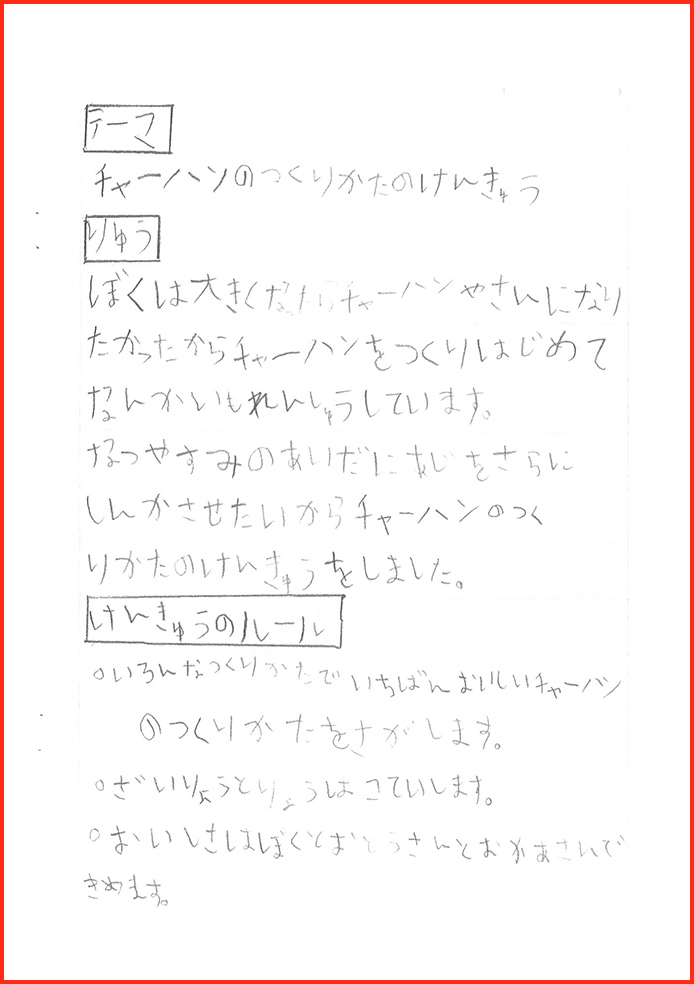 テーマ
チャーハンのつくりかたのけんきゅう
りゆう
ぼくは大きくなったらチャーハンやさんになり
たかったからチャーハンをつくりはじめて
なんかいもれんしゅうしています。
なつやすみのあいだにあじをさらに
しんかさせたいからチャーハンのつく
りかたのけんきゅうをしました。
けんきゅうのルール
○いろんなつくりかたでいちばんおいしいチャーハン
のつくりかたをさがします。
○ざいりょうとりょうはこていします。
○おいしさはぼくとおとうさんとおかあさんで
きめます。